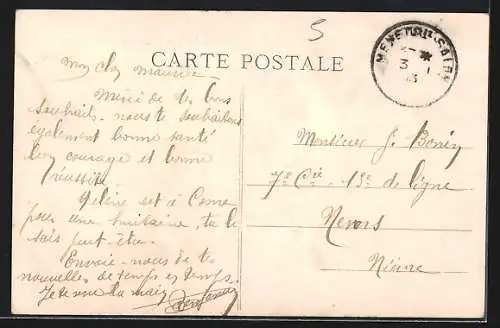 5
CARTE POSTALE
MENETOU-SALON
3 - 1
13
Mon cher Maurice
Merci de tes bons
souhaits - nous te souhaitons
également bonne santé
bon courage et bonne
réussite
Hélène est à Cosne
pour une huitaine, tu le
sais peut-être.
Envoie-nous de tes
nouvelles de temps en temps.
Je te serre la main
Monsieur
7e Cie - 13e de ligne
Nevers
Nièvre